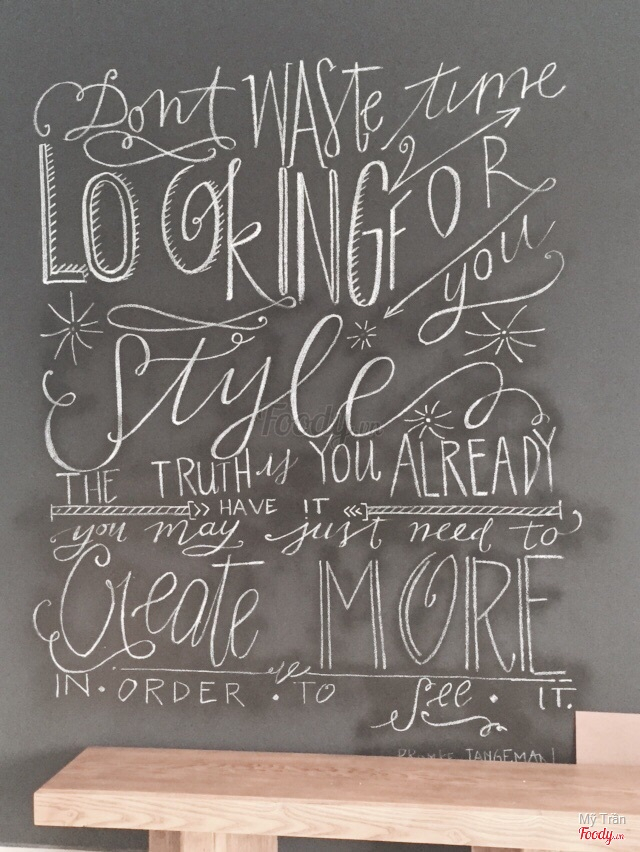 Dont WASte time
LOOkING FOR
you
style
THE TRUTH is YOU ALREADY
HAVE IT
you may just need to
Create MORE
IN • ORDER • TO See • IT.
TANGEMAN
Foody.vn
Mỹ Trân
Foody.vn